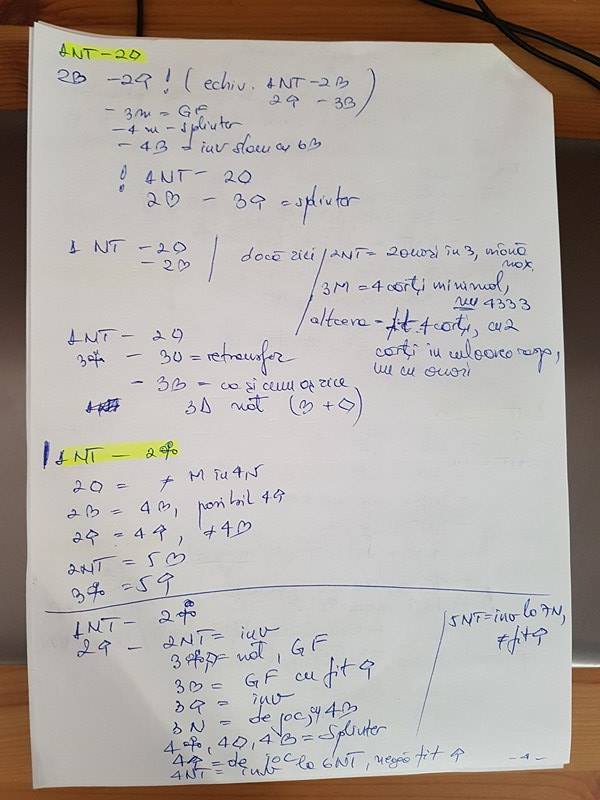 1NT-2◊
2♡ -2♤! (echiv. 1NT-2♡
2♤ -3♡)
-3m = GF
-4m - splinter
-4♡ = inv slam cu 6♡
! 1NT-2◊
2♡ - 3♤ = splinter
1NT -2◊
-2♡
dacă zici
2NT = 2 onori în 3, mână max.
3M = 4 cărți minimal,
nu 4333
altceva = fit 4 cărți, cu 2
cărți în culoarea
nu cu onori
1NT - 2◊
3♣ - 3◊ = retransfer
- 3♡ = ca și cum ar zice
3♤ nat (♡+◊)
1NT - 2♣
2◊ = ≠ M în 4N
2♡ = 4♡, posibil 4♤
2♤ = 4♤, ≠4♡
2NT = 5♡
3♣ = 5♤
1NT - 2♣
2♤ - 2NT = inv
3♣,◊ = nat, GF
3♡ = GF cu fit ♤
3♤ = inv
3N = de joc, cu 4♡
4♣, 4◊, 4♡ = Splinter
4♤ = de joc
4NT = inv la 6NT, neagă fit ♤
5NT = inv la 7N,
≠ fit ♤
-1-